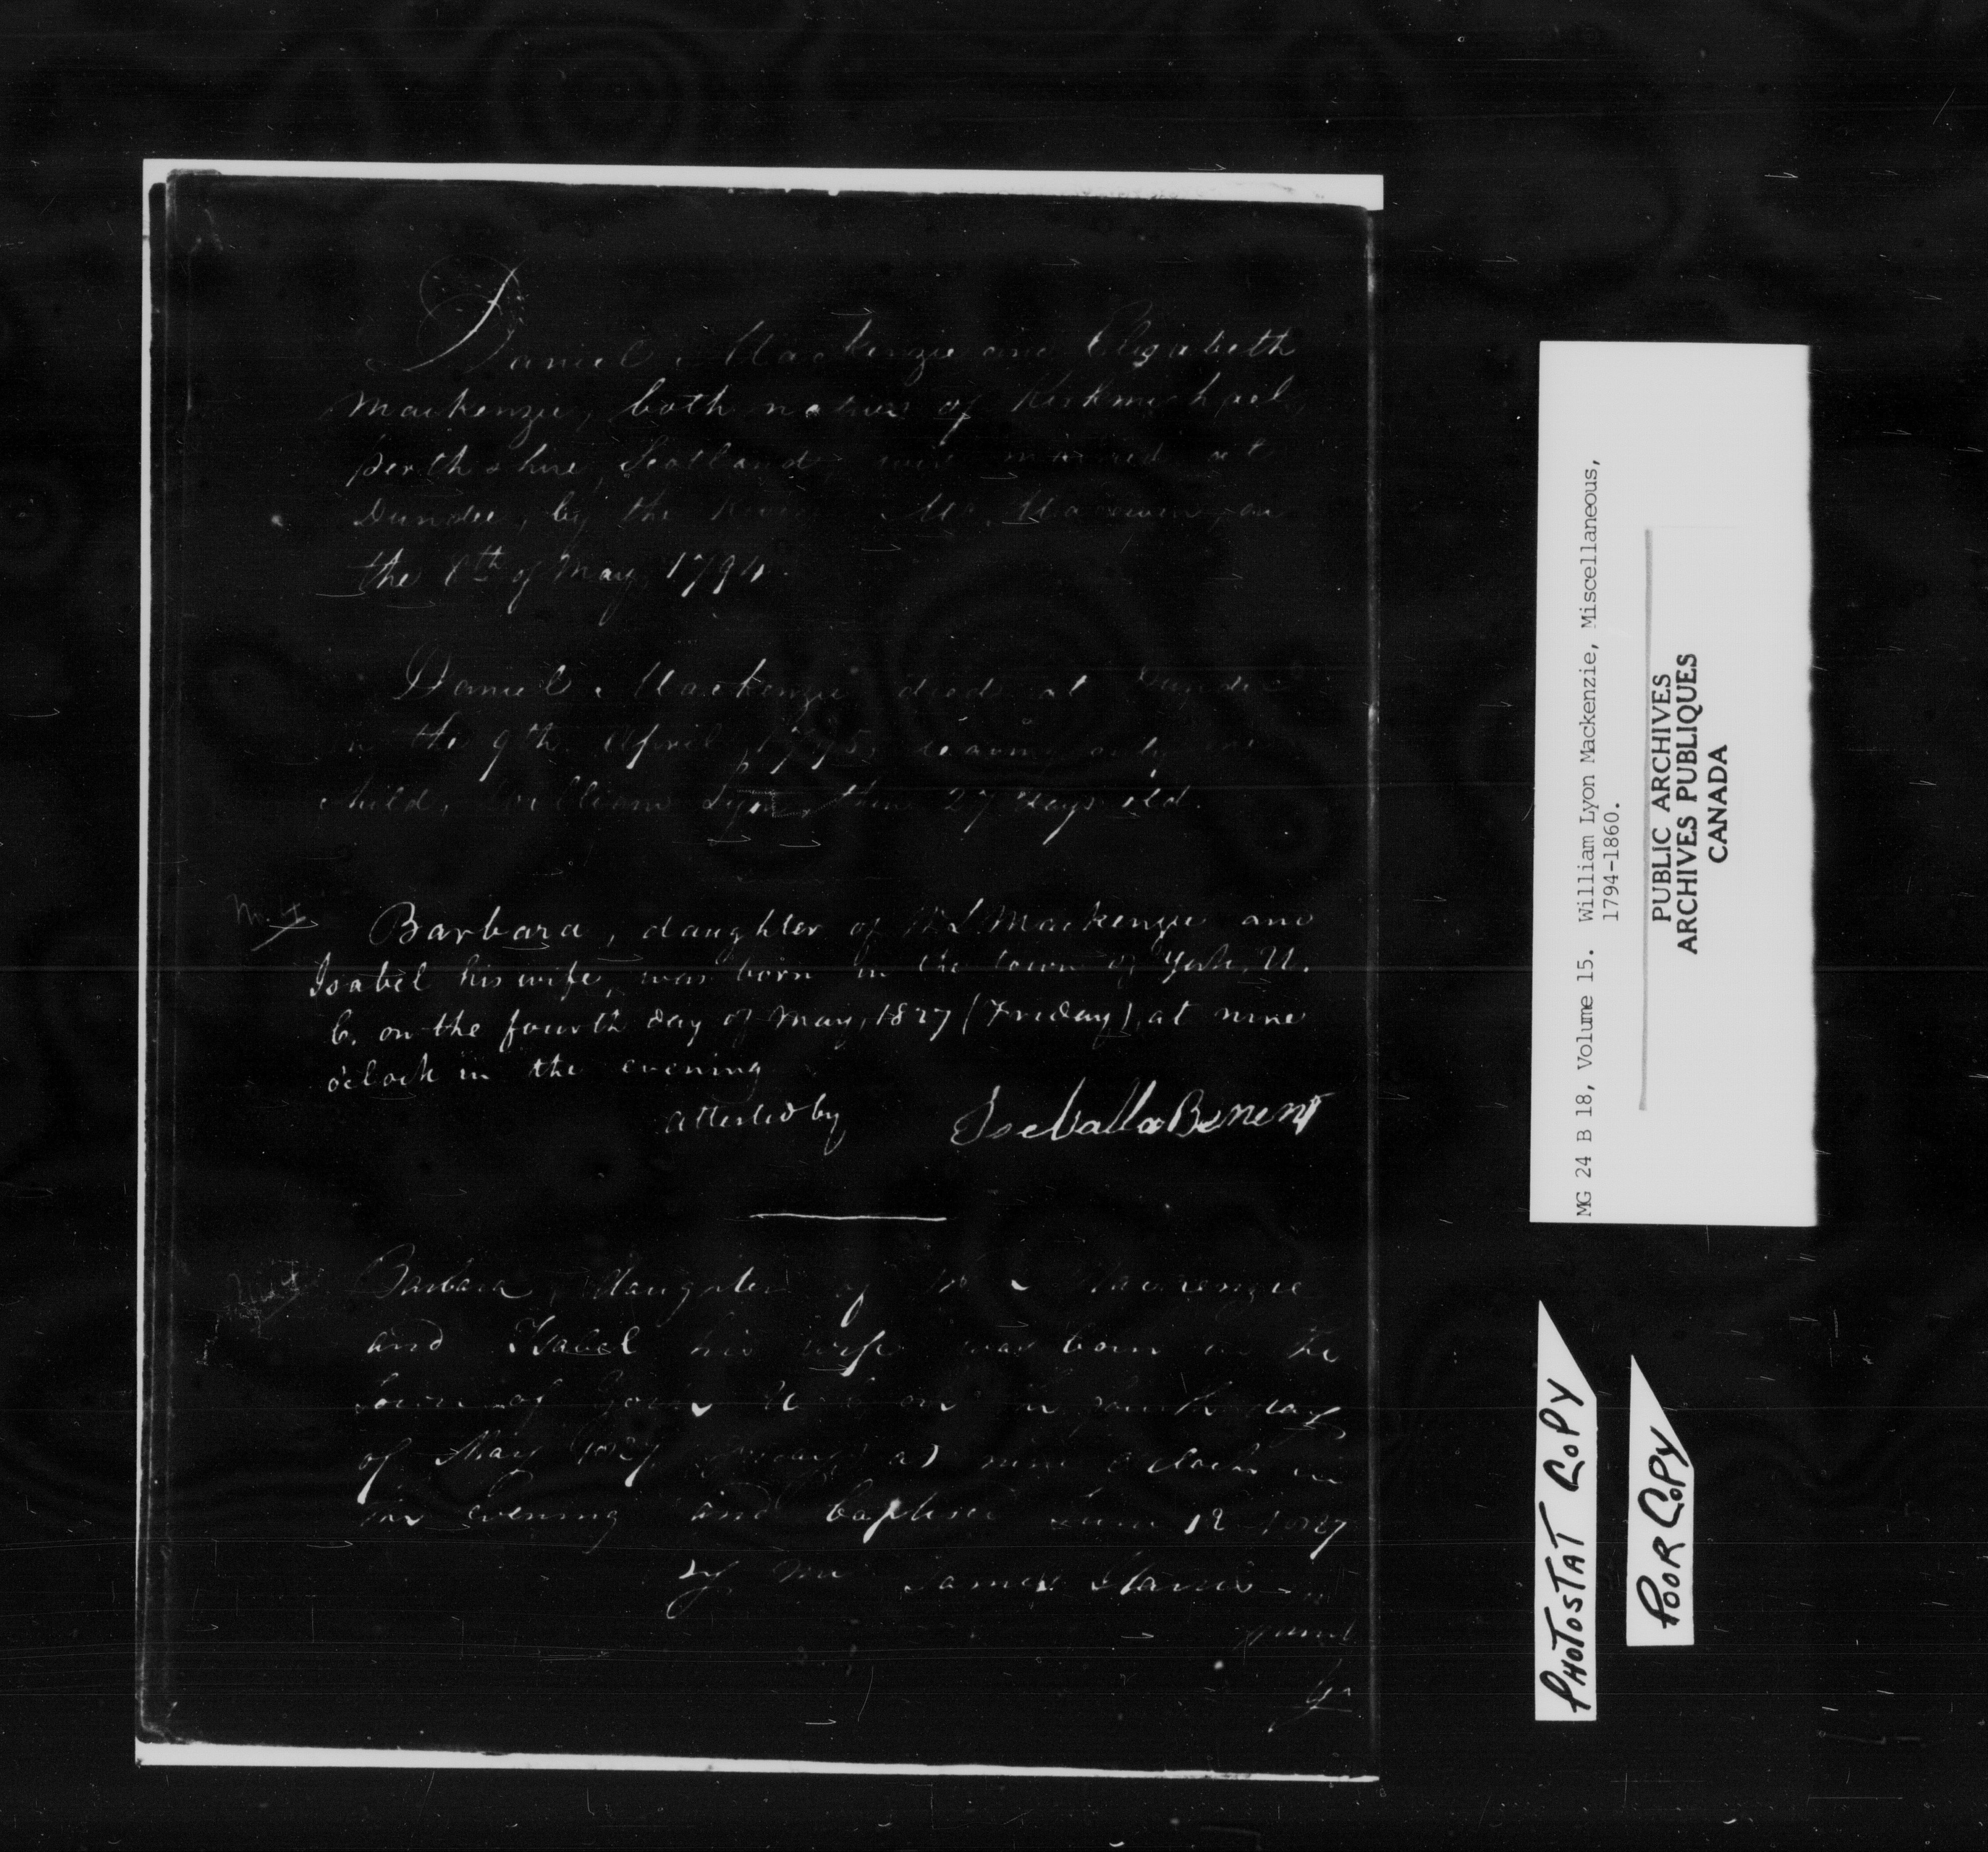 Daniel Mackenzie and Elizabeth
Mackenzie, both natives of Kirkmichael,
Perthshire, Scotland, were married at
Dundee, by the Mr. on
the 8th of May, 1794.
Daniel Mackenzie died at Dundee
on the 9th April, 1795, leaving only one
child, William Lyon, then 27 days old.
Barbara, daughter of W. L. Mackenzie and
Isabel his wife, was born in the town of York, U.
C. on the fourth day of May, 1827 (Friday), at nine
o'clock in the evening
attested by
Barbara, daughter of Mackenzie
and Isabel his wife was born in the
town of York U C on the fourth day
of May 1827 at nine o clock in
the evening and baptised June 12 1827
by Mr James Harris
MG 24 B 18, Volume 15. William Lyon Mackenzie, Miscellaneous,
1794-1860.
PUBLIC ARCHIVES
ARCHIVES PUBLIQUES
CANADA
PHOTOSTAT COPY
POOR COPY